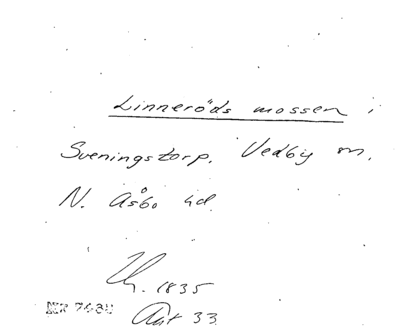 Linneröds mossen i
Sveningstorp, Vedby sn,
N. Åsbo hd.
1835
33